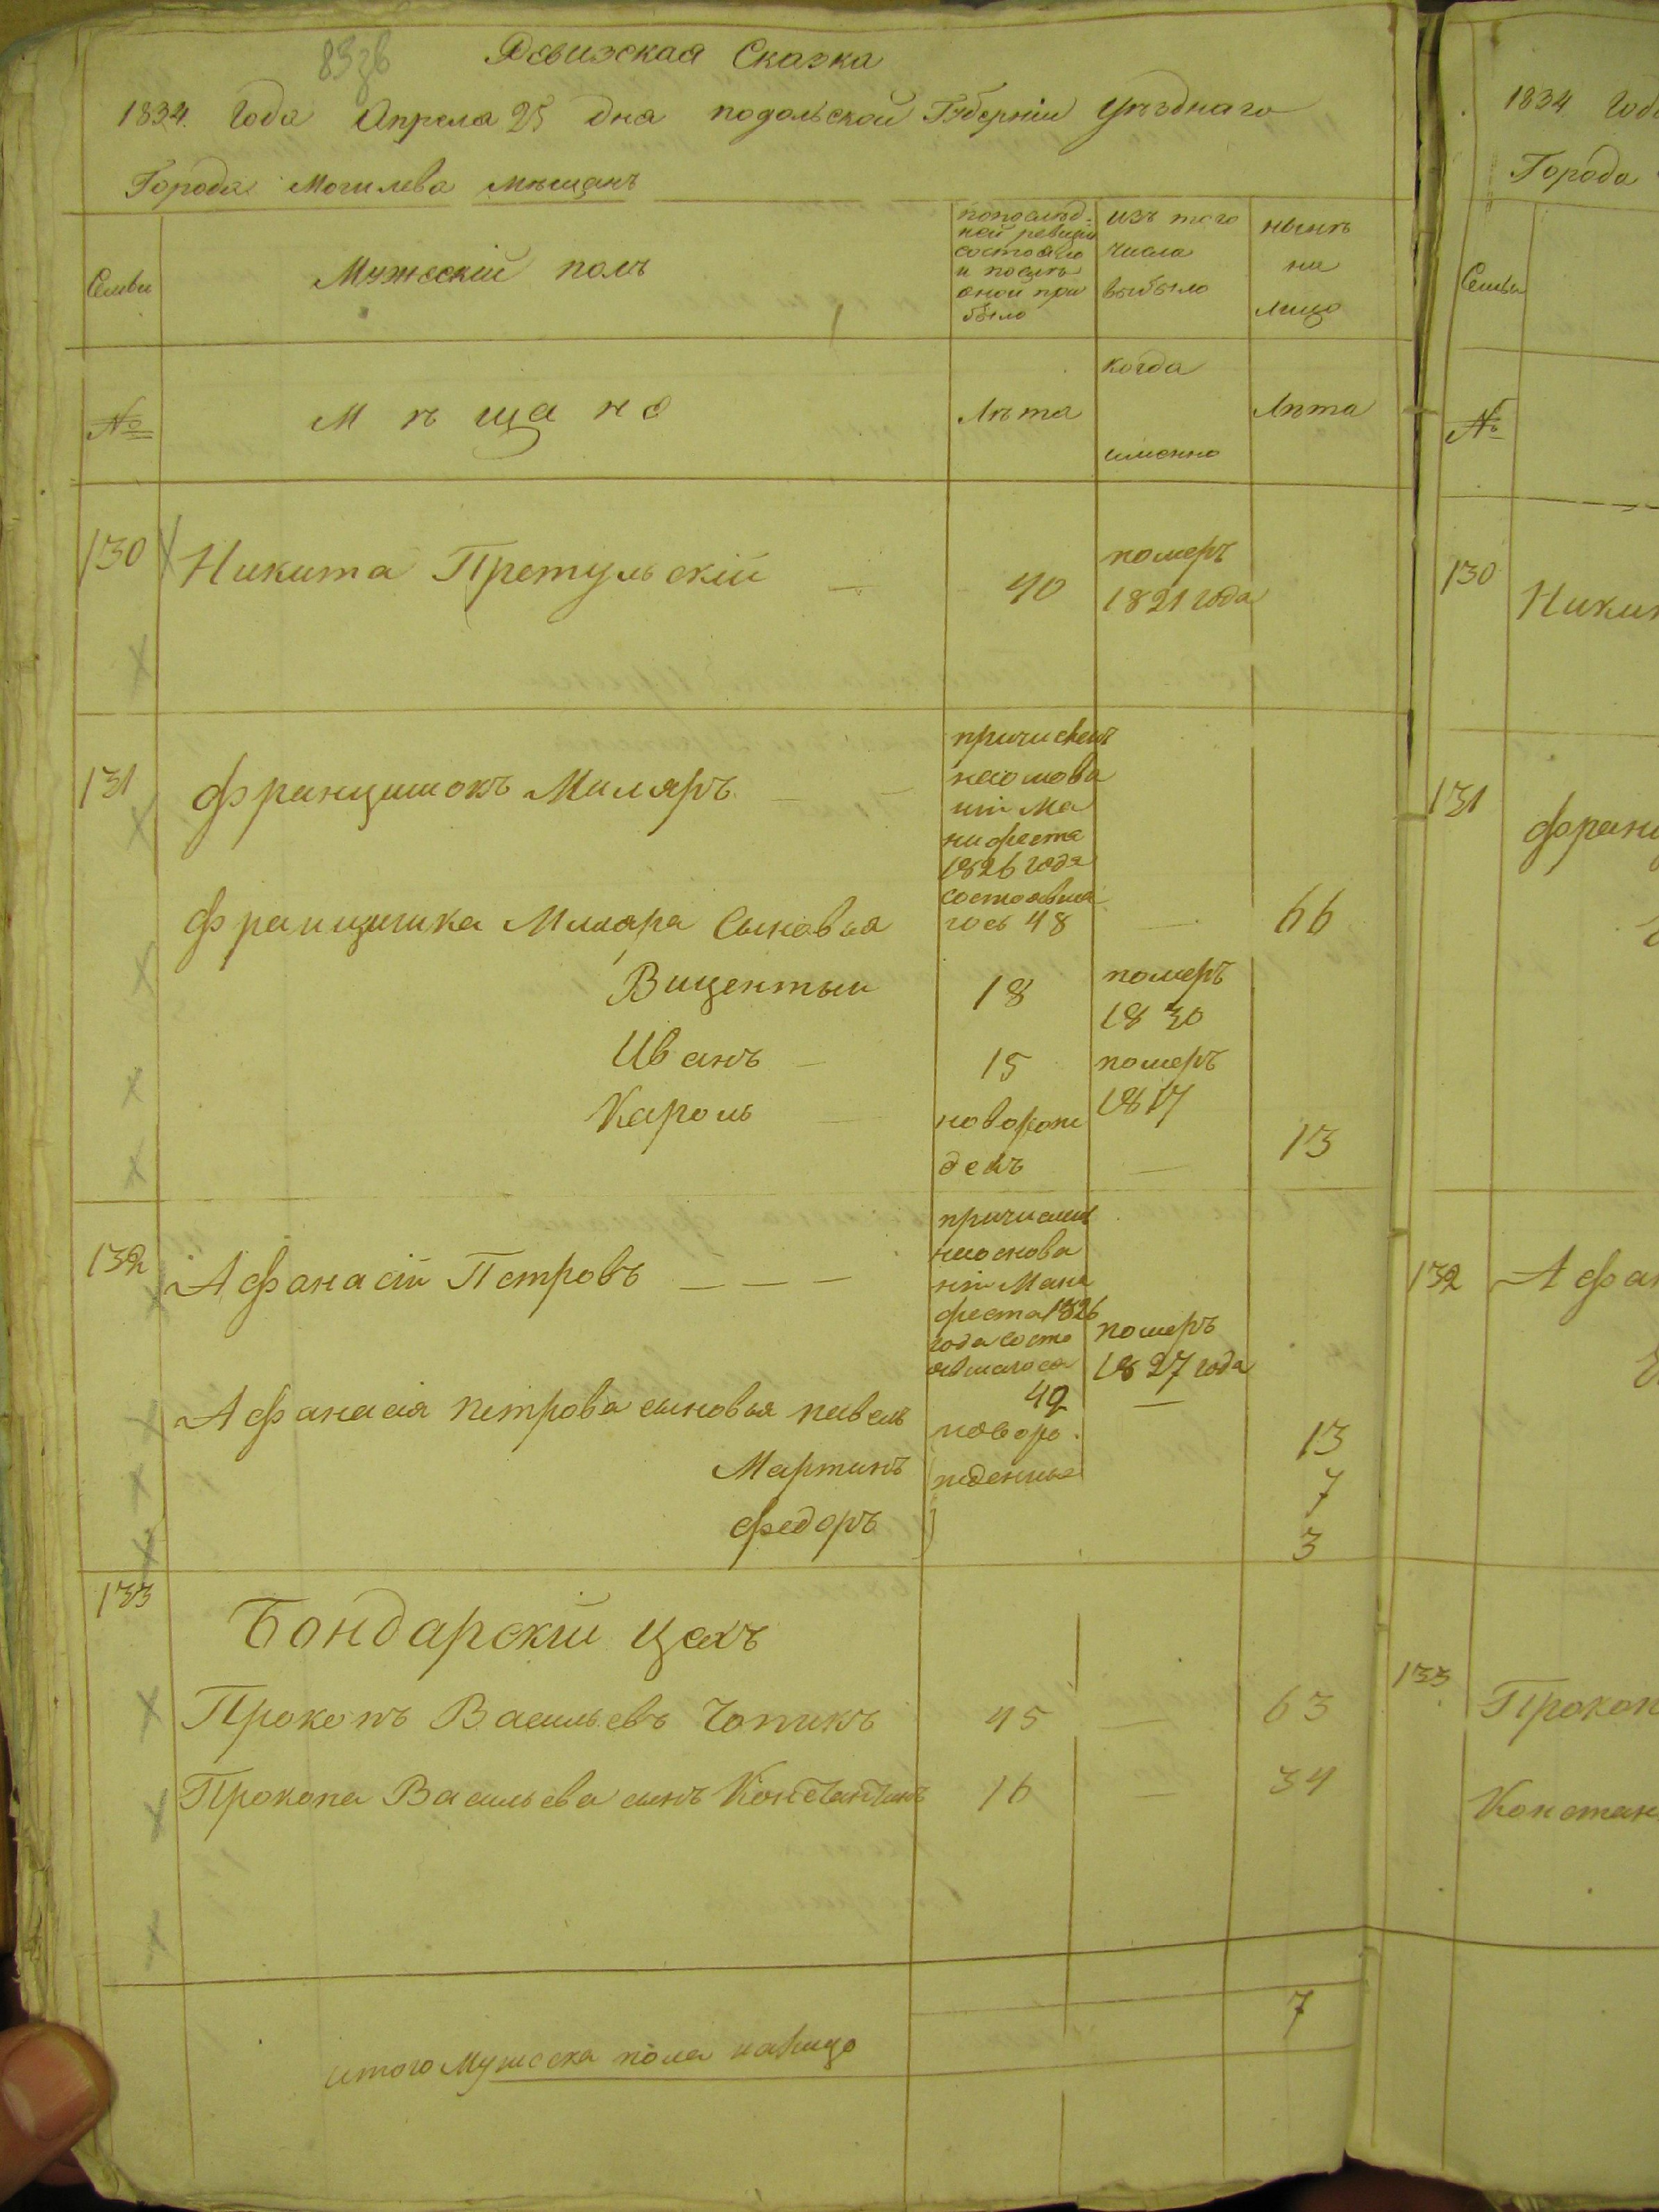 83зв
Ревизская Сказка
1834 Года Апреля 25 дня подольской Губерніи Уѣзднаго
Города Могилева мѣщанъ
Семьи
Мужескій полъ
попослѣд-
ней ревизіи
состояло
и послѣ
оной при
было
изъ того
числа
выбыло
нынѣ
на
лицо
№
Мѣщане
Лѣта
когда
именно
Лѣта
130
Никита Претульскій
40
померъ
1821 года
131
Францишокъ Миляръ
причисленъ
наоснова
ніи Ма
нифеста
1826 года
состоявша
гось 48
66
Францишка Миляра Сыновья
Вицентыи
18
померъ
1830
Иванъ
15
померъ
1817
Кароль
новорож
денъ
13
132
Афанасій Петровъ
наоснова
ніи Мани
феста 1826
года состо
явшагося
42
померъ
1827 года
Афанасія петрова сыновья павелъ
новоро
жденные
13
Мартинъ
7
Федоръ
3
133
Бондарскій цехъ
Прокопъ Васильевъ Чопикъ
45
63
Прокопа Васильева сынъ Константинъ
16
34
итого Мужеска пола налицо
7
1834 Года
Города
Семьи
№
130
Никит
131
Франц
132
Афан
133
Прокоп
Констан